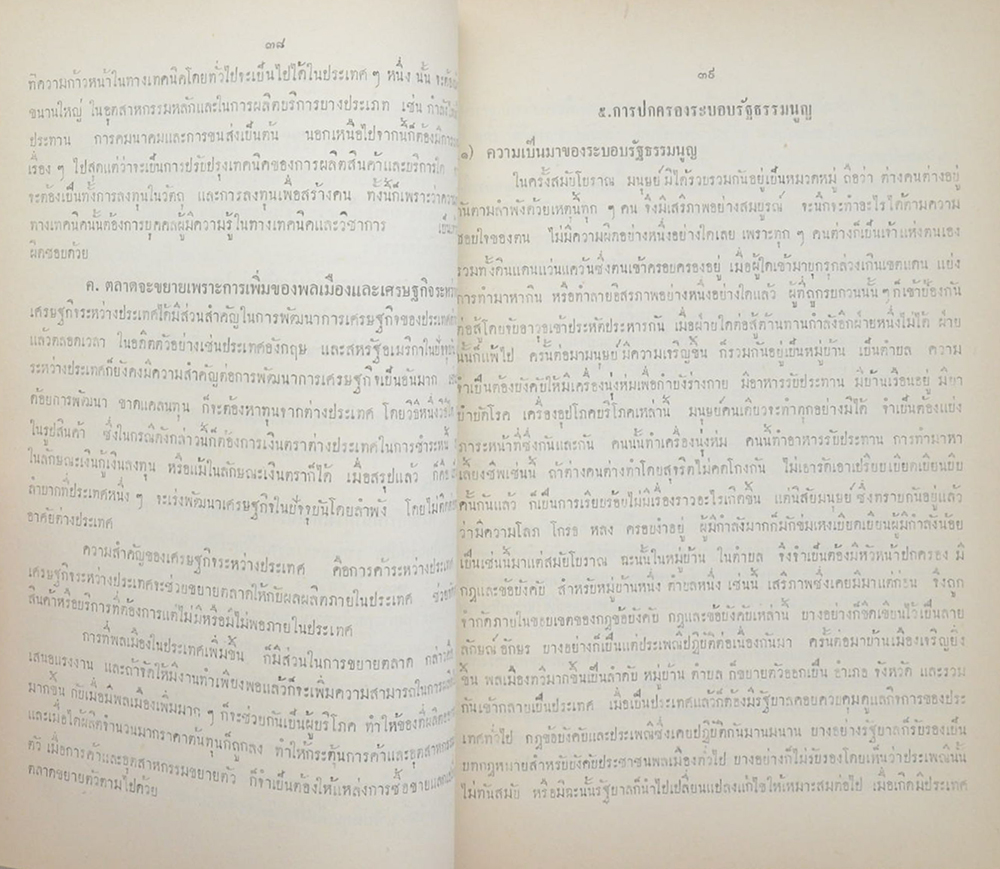 ๓๘
ที่ความก้าวหน้าในทางเทคนิคโดยทั่วไปจะเป็นไปได้ในประเทศ ๆ หนึ่ง นั้น จะต้อง
ขนานใหญ่ ในอุตสาหกรรมหลักและในการผลิตบริการบางประเภท เช่น กำลัง
ประทาน การคมนาคมและการขนส่งเป็นต้น นอกเหนือไปจากนี้ก็ต้องมีการ
เรื่อง ๆ ไปสุดแต่ว่าจะเป็นการปรับปรุงเทคนิคของการผลิตสินค้าและบริการใด
จะต้องเป็นทั้งการลงทุนในวัตถุ และการลงทุนเพื่อสร้างคน ทั้งนี้ก็เพราะว่าความ
ทางเทคนิคนั้นต้องการบุคคลผู้มีความรู้ในทางเทคนิคและวิชาการ เป็น
ผิดชอบด้วย
ค. ตลาดจะขยายเพราะการเพิ่มของพลเมืองและเศรษฐกิจระหว่าง
เศรษฐกิจระหว่างประเทศได้มีส่วนสำคัญในการพัฒนาการเศรษฐกิจของประเทศ
แล้วตลอดเวลา ในอดีตตัวอย่างเช่นประเทศอังกฤษ และสหรัฐอเมริกาในปัจจุบัน
ระหว่างประเทศก็ยังคงมีความสำคัญต่อการพัฒนาการเศรษฐกิจเป็นอันมาก
ด้อยการพัฒนา ขาดแคลนทุน ก็จะต้องหาทุนจากต่างประเทศ โดยวิธีหนึ่งวิธีใด
ในรูปสินค้า ซึ่งในกรณีดังกล่าวนี้ก็ต้องการเงินตราต่างประเทศในการชำระหนี้
ในลักษณะเงินกู้เงินลงทุน หรือแม้ในลักษณะเงินตราก็ได้ เมื่อสรุปแล้ว ก็คือ
ลำบากที่ประเทศหนึ่ง ๆ จะเร่งพัฒนาเศรษฐกิจในปัจจุบันโดยลำพัง โดยไม่
อาศัยต่างประเทศ
ความสำคัญของเศรษฐกิจระหว่างประเทศ คือการค้าระหว่างประเทศ
เศรษฐกิจระหว่างประเทศจะช่วยขยายตลาดให้กับผลผลิตภายในประเทศ ช่วย
สินค้าหรือบริการที่ต้องการแต่ไม่มีหรือมีไม่พอภายในประเทศ
การที่พลเมืองในประเทศเพิ่มขึ้น ก็มีส่วนในการขยายตลาด กล่าวคือ
เสนอแรงงาน และถ้าจัดให้มีงานทำเพียงพอแล้วก็จะเพิ่มความสามารถในการผลิต
มากขึ้น กับเมื่อมีพลเมืองเพิ่มมาก ๆ ก็จะช่วยกันเป็นผู้บริโภค ทำให้ของที่ผลิต
และเมื่อได้ผลิตจำนวนมากราคาต้นทุนก็ถูกลง ทำให้กระตุ้นการค้าและอุตสาหกรรม
ตัว เมื่อการค้าและอุตสาหกรรมขยายตัว ก็จำเป็นต้องให้แหล่งการซื้อขายแลก
ตลาดขยายตัวตามไปด้วย
๓๙
๕.การปกครองระบอบรัฐธรรมนูญ
๑) ความเป็นมาของระบอบรัฐธรรมนูญ
ในครั้งสมัยโบราณ มนุษย์มิได้รวบรวมกันอยู่เป็นหมวดหมู่ ถือว่า ต่างคนต่างอยู่
กันตามลำพังด้วยเหตุนี้ทุก ๆ คน จึงมีเสรีภาพอย่างสมบูรณ์ จะนึกจะทำอะไรได้ตามความ
ชอบใจของตน ไม่มีความผิดอย่างหนึ่งอย่างใดเลย เพราะทุก ๆ คนต่างก็เป็นเจ้าแห่งตนเอง
รวมทั้งดินแดนแว่นแคว้นซึ่งตนเข้าครอบครองอยู่ เมื่อผู้ใดเข้ามาบุกรุกล่วงเกินเขตแดน แย่ง
การทำมาหากิน หรือทำลายอิสรภาพอย่างหนึ่งอย่างใดแล้ว ผู้ที่ถูกรบกวนนั้น ๆ ก็เข้าป้องกัน
ต่อสู้โดยจับอาวุธเข้าประหัตประหารกัน เมื่อฝ่ายใดต่อสู้ต้านทานกำลังอีกฝ่ายหนึ่งไม่ได้ ฝ่าย
นั้นก็แพ้ไป ครั้นต่อมามนุษย์มีความเจริญขึ้น ก็รวมกันอยู่เป็นหมู่บ้าน เป็นตำบล ความ
จำเป็นต้องบังคับให้มีเครื่องนุ่งห่มเพื่อกำบังร่างกาย มีอาหารรับประทาน มีบ้านเรือนอยู่ มียา
บำบัดโรค เครื่องอุปโภคบริโภคเหล่านี้ มนุษย์คนเดียวจะทำทุกอย่างมิได้ จำเป็นต้องแบ่ง
ภาระหน้าที่ซึ่งกันและกัน คนนั้นทำเครื่องนุ่งห่ม คนนี้ทำอาหารรับประทาน การทำมาหา
เลี้ยงชีพเช่นนี้ ถ้าต่างคนต่างทำโดยสุจริตไม่คดโกงกัน ไม่เอารัดเอาเปรียบเบียดเบียนบีบ
คั้นกันแล้ว ก็เป็นการเรียบร้อยไม่มีเรื่องราวอะไรเกิดขึ้น แต่นิสัยมนุษย์ซึ่งทราบกันอยู่แล้ว
ว่ามีความโลภ โกรธ หลง ครอบงำอยู่ ผู้มีกำลังมากก็มักข่มเหงเบียดเบียนผู้มีกำลังน้อย
เป็นเช่นนี้มาแต่สมัยโบราณ ฉะนั้นในหมู่บ้าน ในตำบล จึงจำเป็นต้องมีหัวหน้าปกครอง มี
กฎและข้อบังคับ สำหรับหมู่บ้านหนึ่ง ตำบลหนึ่ง เช่นนี้ เสรีภาพซึ่งเคยมีมาแต่ก่อน จึงถูก
จำกัดภายในขอบเขตของกฎข้อบังคับ กฎและข้อบังคับเหล่านี้ บางอย่างก็ขีดเขียนไว้เป็นลาย
ลักษณ์อักษร บางอย่างก็เป็นแต่ประเพณีปฏิบัติต่อเนื่องกันมา ครั้นต่อมาบ้านเมืองเจริญยิ่ง
ขึ้น พลเมืองทวีมากขึ้นเป็นลำดับ หมู่บ้าน ตำบล ก็ขยายตัวออกเป็น อำเภอ จังหวัด และรวม
กันเข้ากลายเป็นประเทศ เมื่อเป็นประเทศแล้วก็ต้องมีรัฐบาลคอยควบคุมดูแลกิจการของประ
เทศทั่วไป กฎข้อบังคับและประเพณีซึ่งเคยปฏิบัติกันมานมนาน บางอย่างรัฐบาลก็รับรองเป็น
บทกฎหมายสำหรับบังคับประชาชนพลเมืองทั่วไป บางอย่างก็ไม่รับรองโดยเห็นว่าประเพณีนั้น
ไม่ทันสมัย หรือมิฉะนั้นรัฐบาลก็นำไปเปลี่ยนแปลงแก้ไขให้เหมาะสมต่อไป เมื่อเกิดมีประเทศ